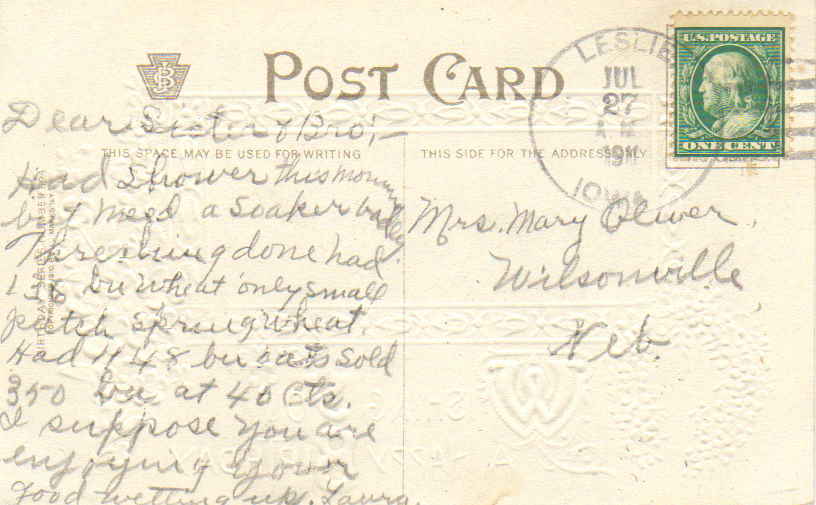 POST CARD
LESLIE
JUL
27
1911
IOWA
U.S. POSTAGE
ONE CENT
THIS SPACE MAY BE USED FOR WRITING
THIS SIDE FOR THE ADDRESS ONLY
Dear Sister & Bro,—
Had Shower this morning
but need a soaker badly
Threshing done had
138 bu wheat only small
patch Spring wheat.
Had 448 bu oats sold
350 bu at 40 cts.
I suppose you are
enjoying your
good wetting up. Laura.
Mrs. Mary Oliver,
Wilsonville
Neb.
A HAPPY BIRTHDAY